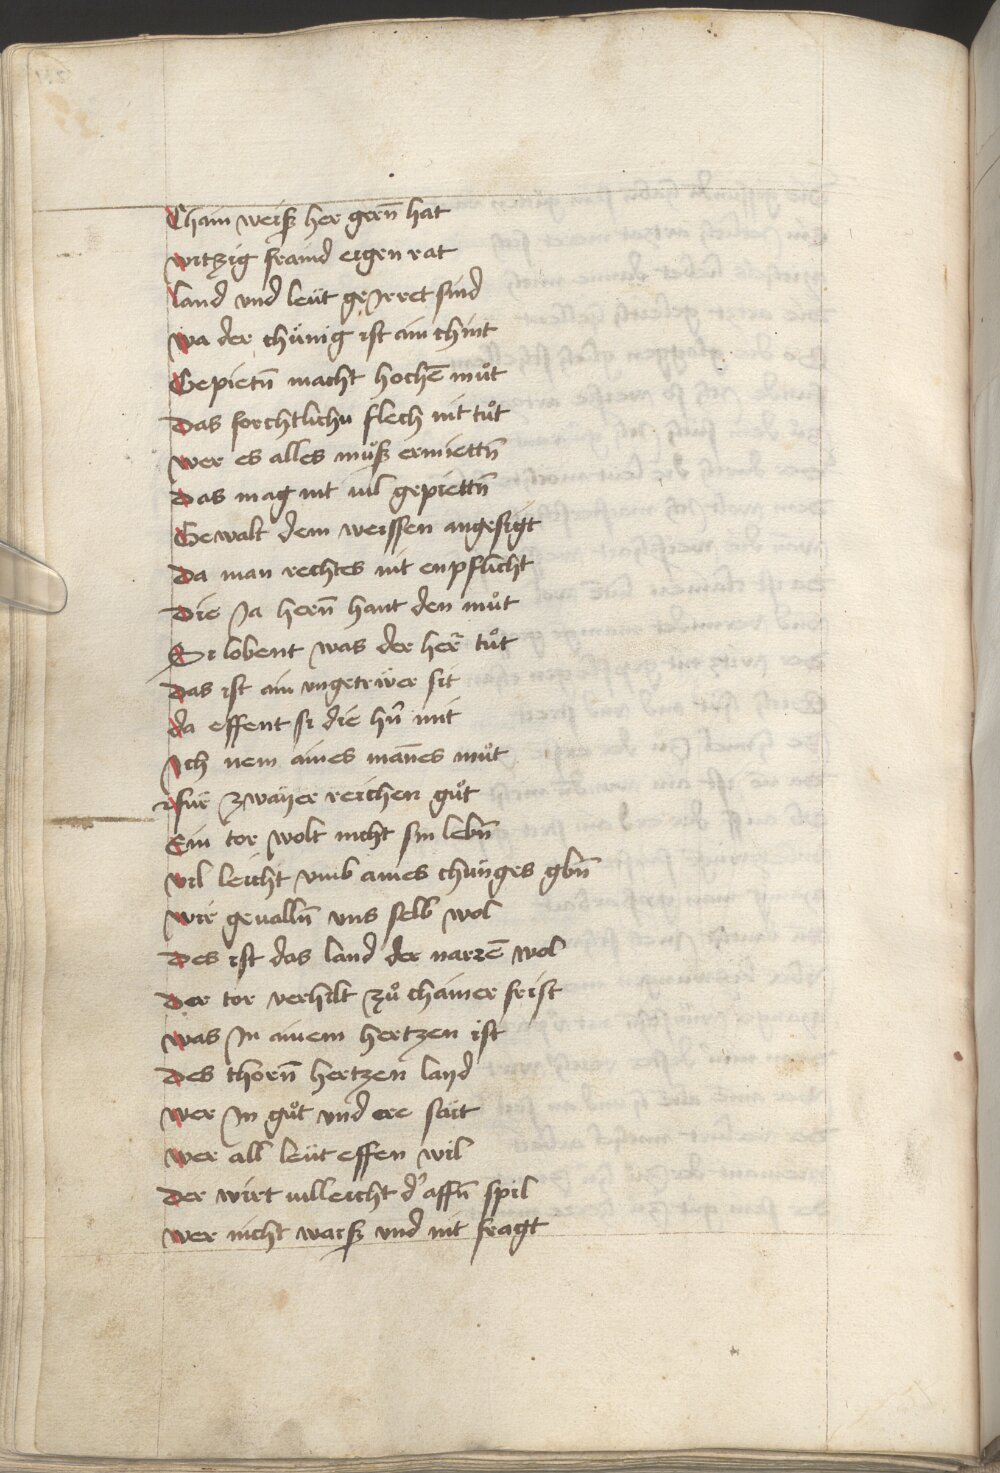 Chain weiß her gern̄ hat
witzig fraind eigen rat
land vnd leüt geJrret sind
wa der chünig ist ain chint
Gepietn̄ macht hochē muͦt
Das forchtlichn flech nit tuͦt
wer es alles muͦß ermiettn̄
Das mag nit vil gepiettn̄
Gewalt dem weissen angesigt
Da man rechtes nit enpflicht
Die Ja hern̄ hant den muͦt
Si lobent was der her̄ tuͦt
Das ist ain vngetriwer sit
da effent si die hn̄ mit
Jch nem aines mañes muͦt
für zwaÿer reichen guͦt
Ein tor wolt nicht sin lebn̄
vil leicht vmb aines chünges gbn̄
wir geualln̄ vns selb wol
Des ist das land der narrē wol
Der tor verhilt zuͦ chainer frist
was Jn ainem hertzen ist
Des thorn̄ hertzen layd
wer Jn guͦt vnd ere sait
wer all leüt effen wil
Der wirt villeicht d' affn̄ spil
wer nicht waiß vnd nit fragt